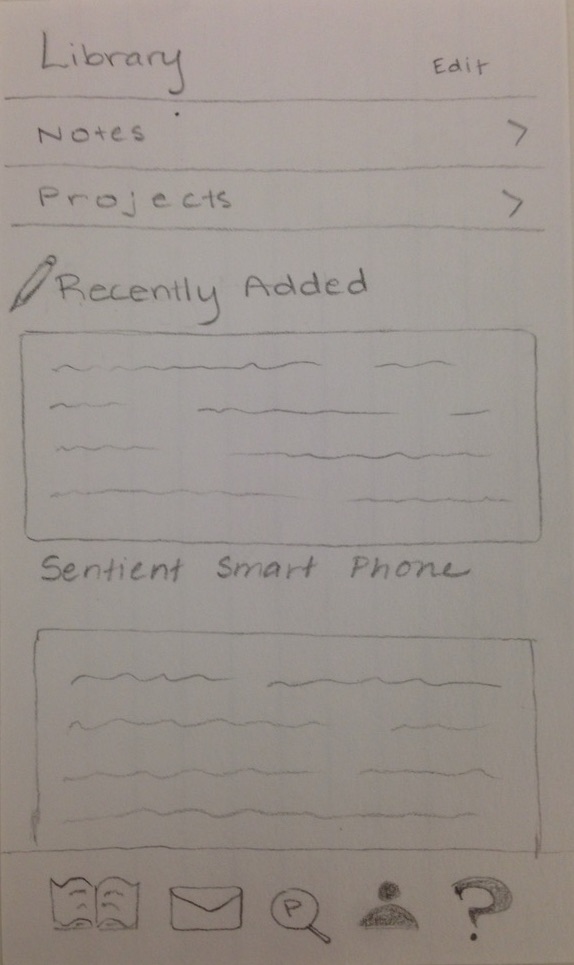 Library
Edit
Notes >
Projects >
Recently Added
Sentient Smart Phone
P
?